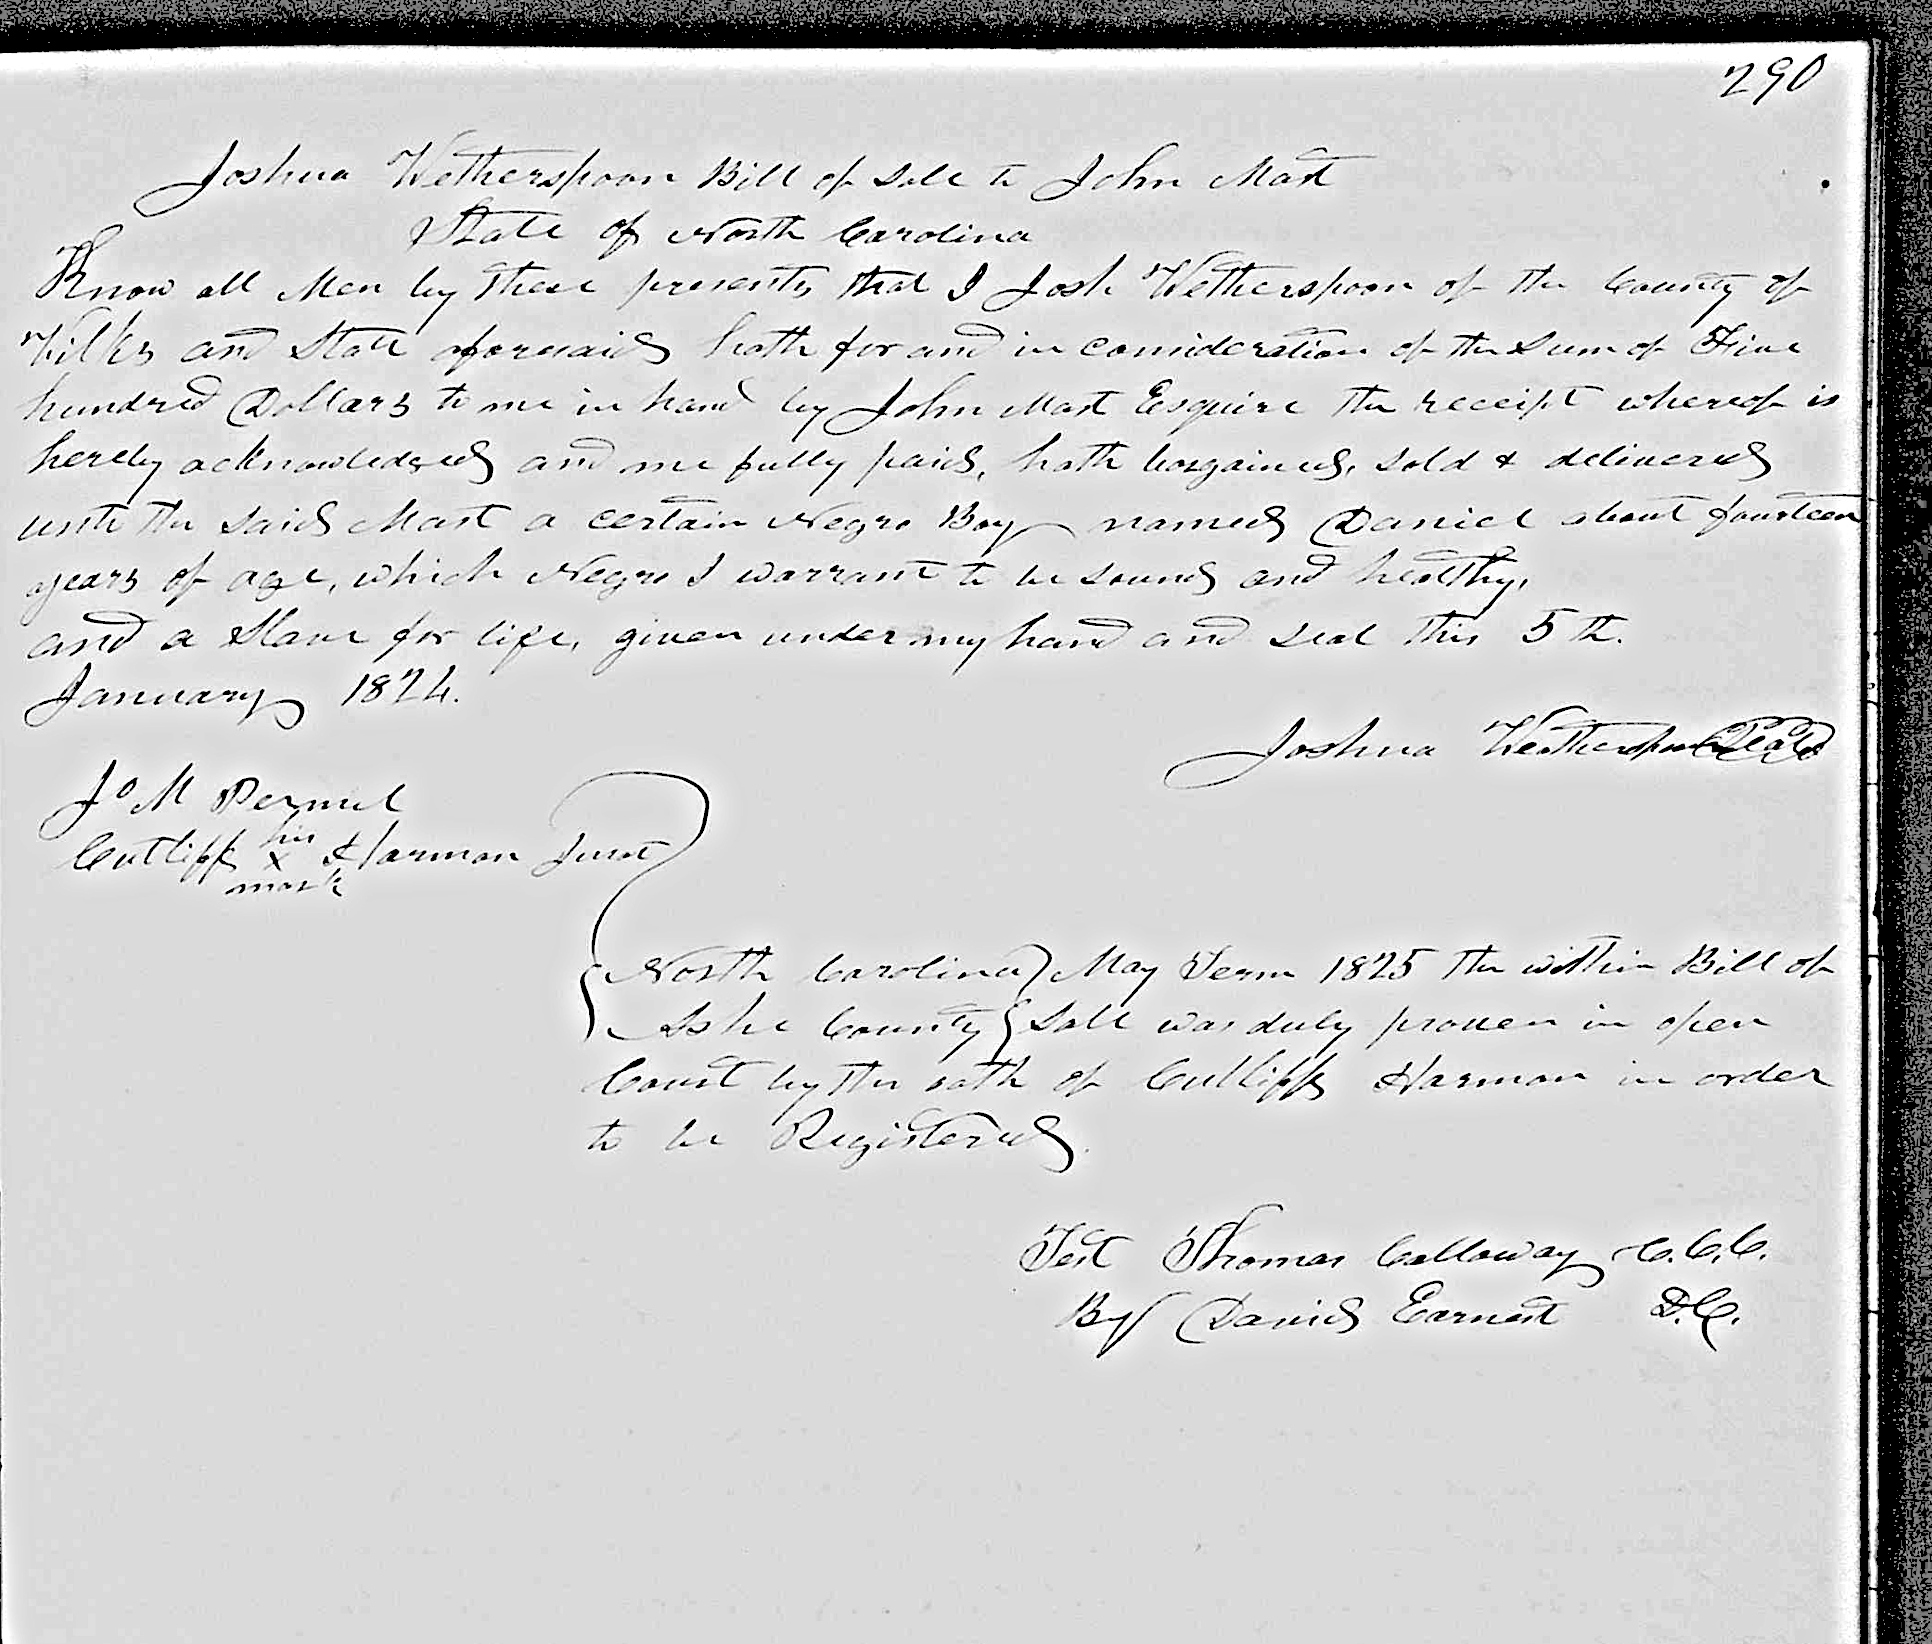 290
Joshua Wetherspoon Bill of Sale to John Mast
State of North Carolina
Know all Men by these presents that I Josh Wetherspoon of the County of
Wilks and State aforesaid hath for and in consideration of the Sum of Five
hundred Dollars to me in hand by John Mast Esquire the receipt whereof is
hereby acknowledged and me fully paid, hath bargained, sold & delivered
unto the said Mast a certain Negro Boy named Daniel about fourteen
years of age, which Negro I warrant to be sound and healthy,
and a Slave for life, given under my hand and seal this 5th.
January 1824.
Joshua Weatherspoon Seal
Jo M
Cutliff his x mark Harman Jurat
North Carolina May Term 1825 the within Bill of
Ashe County Sale was duly proven in open
Court by the oath of Cutliff Harman in order
to be Registered.
Test Thomas Calloway C.C.C.
By David Earnest D.C.